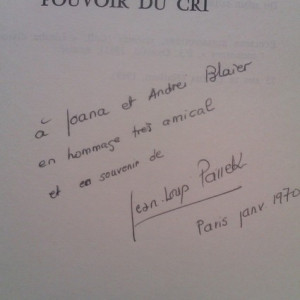 POUVOIR DU CRI
à Joana et Andrei Blaier
en hommage très amical
et en souvenir de
Jean-Loup Passek
Paris janv 1970